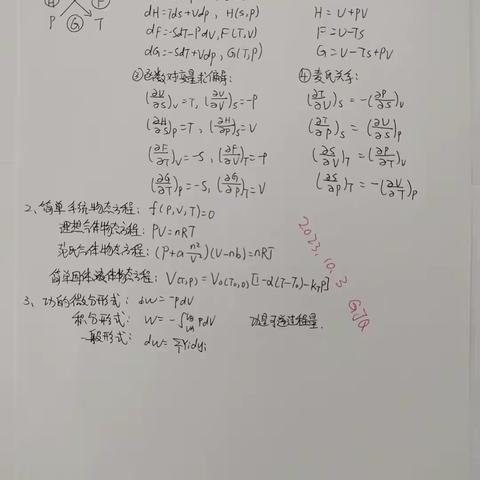 H F
P G T
dH=Tds+Vdp, H(S,P) H=U+PV
dF=-SdT-PdV, F(T,V) F=U-TS
dG=-SdT+Vdp, G(T,P) G=U-TS+PV
③函数对变量求偏导: ④麦氏关系:
(∂U/∂S)_V=T, (∂U/∂V)_S=-P (∂T/∂V)_S=-(∂P/∂S)_V
(∂H/∂S)_P=T, (∂H/∂P)_S=V (∂T/∂P)_S=(∂V/∂S)_P
(∂F/∂T)_V=-S, (∂F/∂V)_T=-P (∂S/∂V)_T=(∂P/∂T)_V
(∂G/∂T)_P=-S, (∂G/∂P)_T=V (∂S/∂P)_T=-(∂V/∂T)_P
2、简单系统物态方程: f(P,V,T)=0
理想气体物态方程: PV=nRT
范氏气体物态方程: (P+a n²/V²)(V-nb)=nRT
简单固体液体物态方程: V(T,P)=V₀(T₀,0)[1-α(T-T₀)-k_T P]
3、功的微分形式: dw=-pdV
积分形式: W=-∫PdV 功是过程量.
一般形式: dw=ΣYᵢdyᵢ
2023.10.3
GJQ